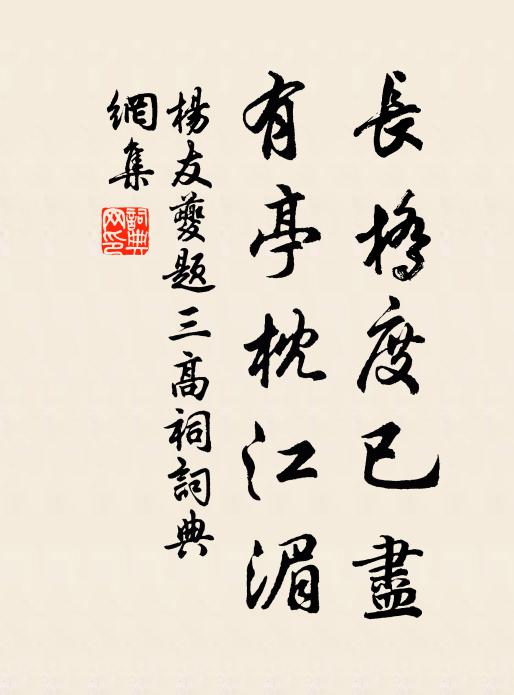 長橋度已盡
有亭枕江湄
楊友夔題三高祠詞典
網集
詞典網印